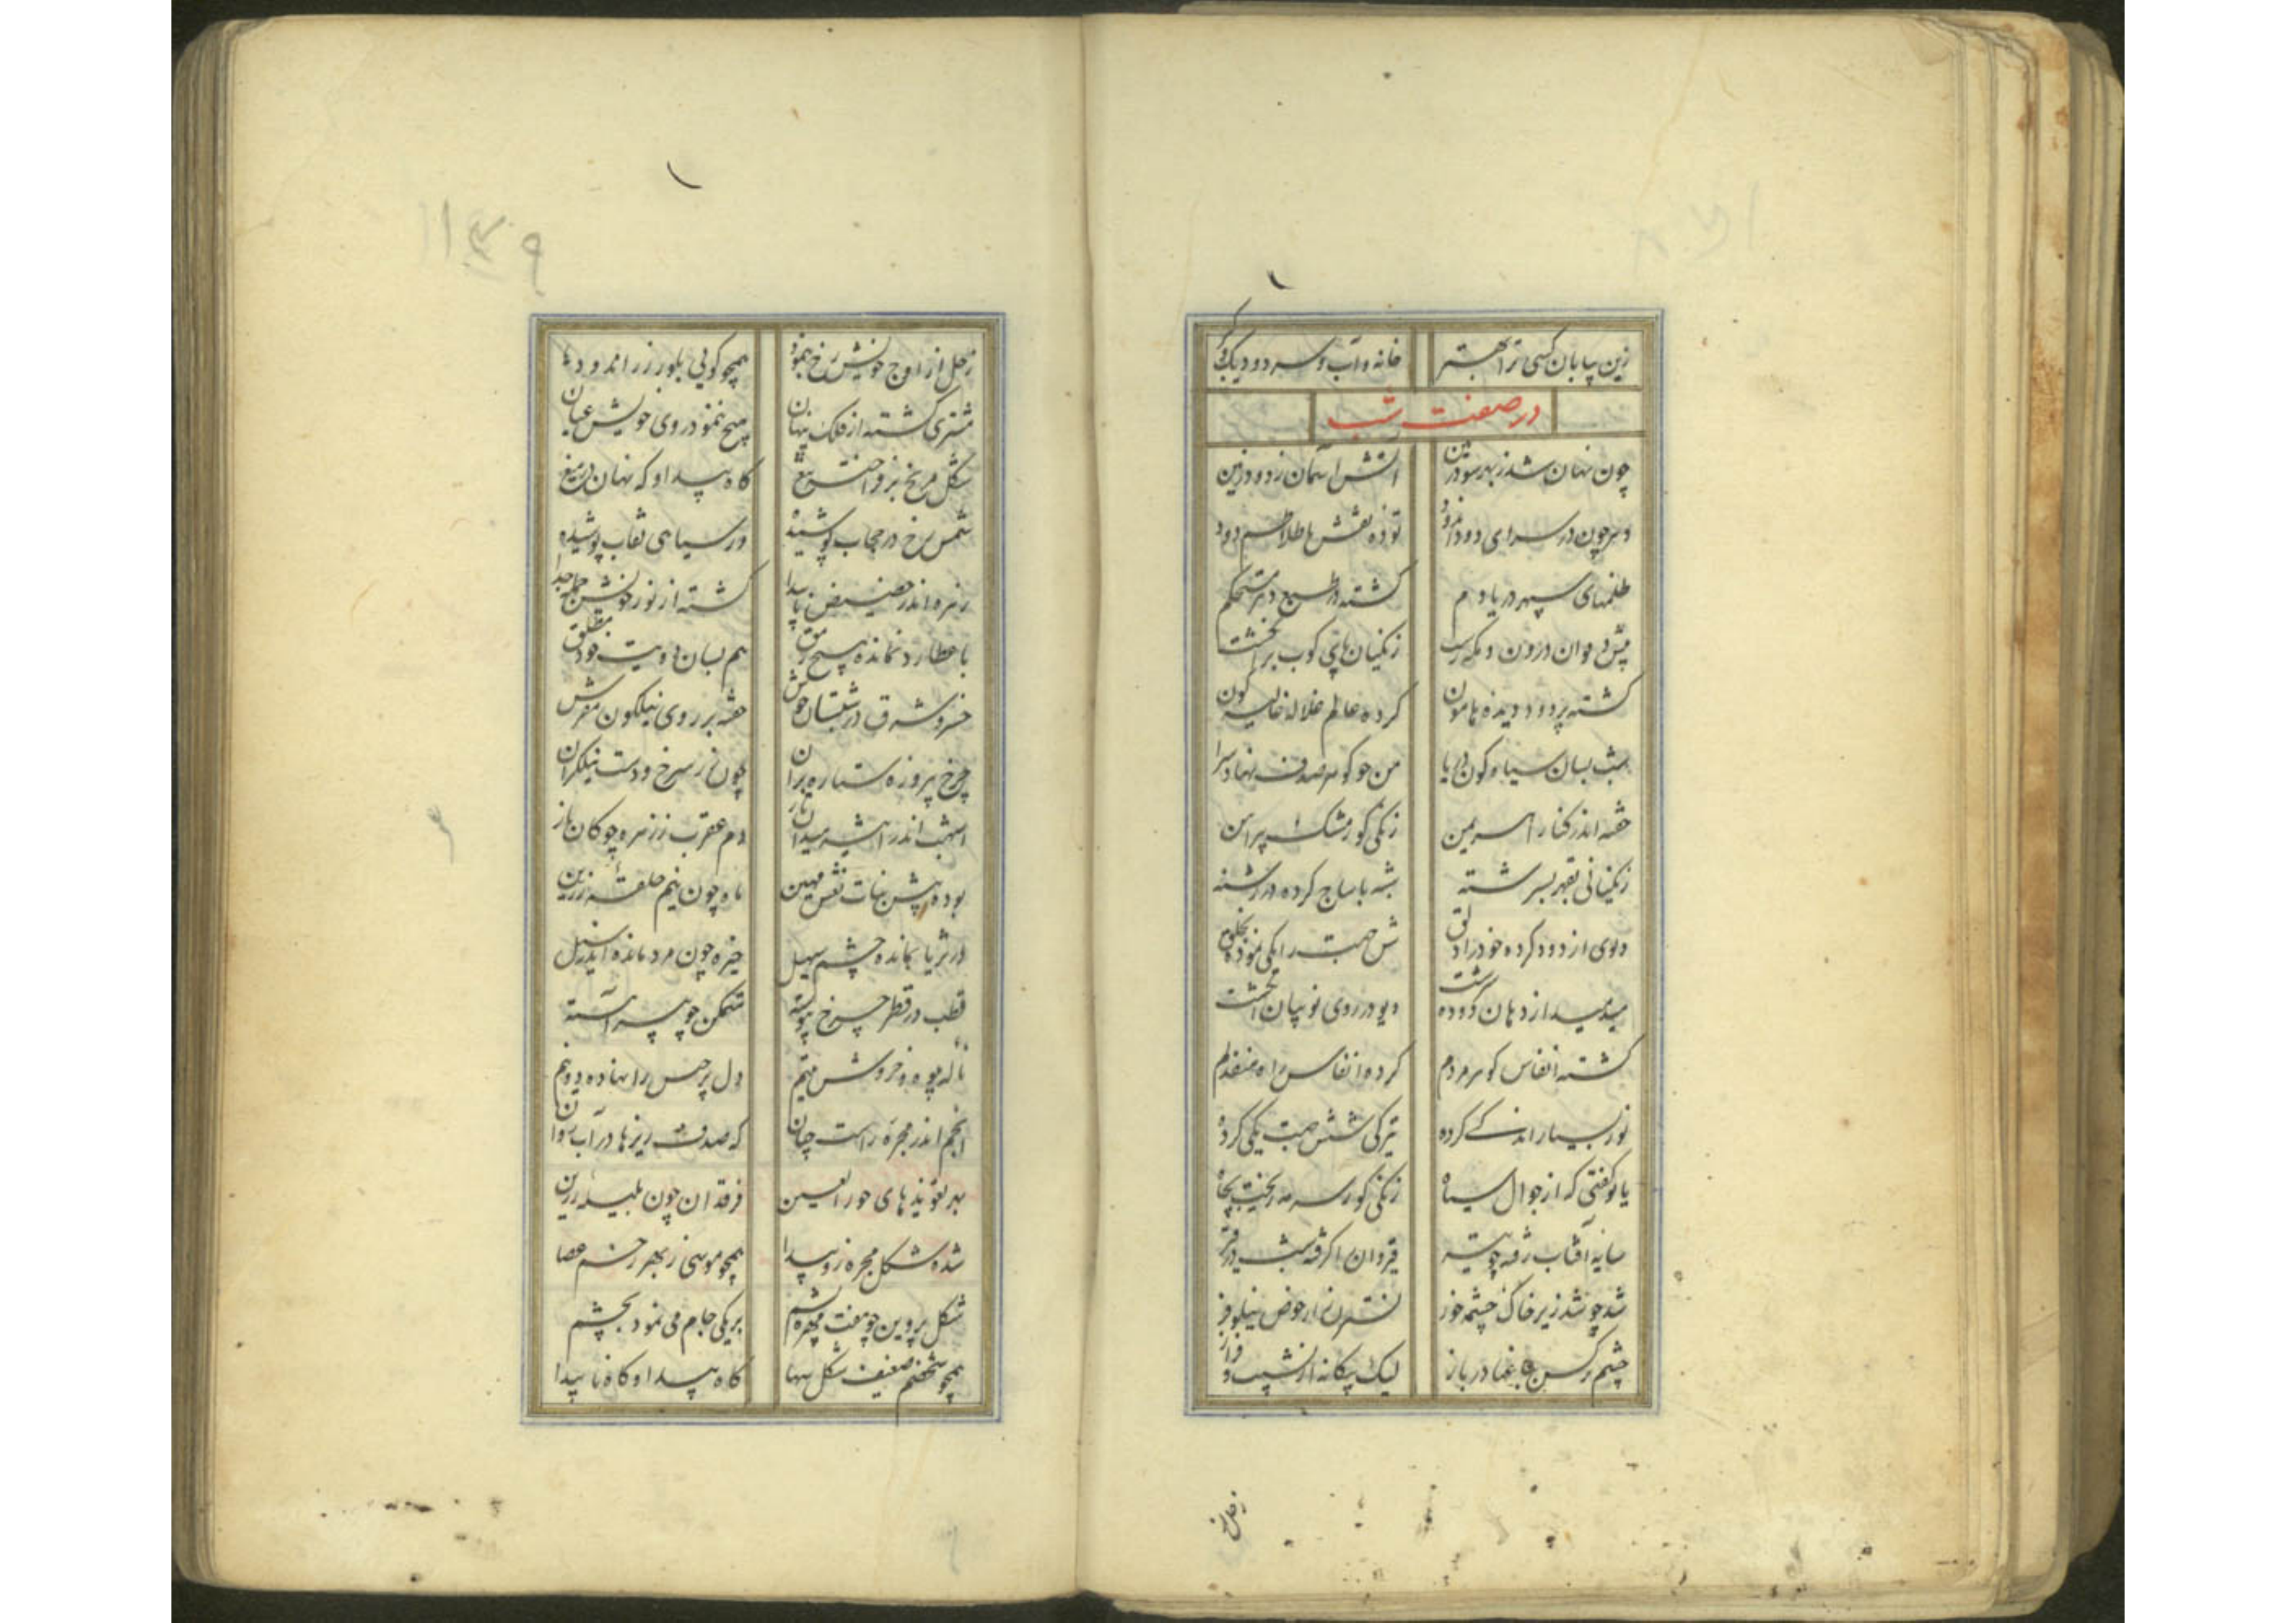 زین بیابان کسی ترا بهتر خانه و آب و سرد و دیک
در صفت شب
چون نهان شد ز بهر سود زمین آتش آسمان ز دود زمین
طلسمهای سپهر دریا دم گشته در طبع دهر مستحکم
زنگیان پای کوب
گشته پر دود دیده هامون کرده عالم غلاله غالیه گون
شب بسان سیاه گون دریا من چو گوهر صدف نهاد سرا
حقه اندر کنار اهریمن زنگی کور مشک پیراهن
زنگیانی بقهر بسرشته شبه با ساج کرده در رشته
دیوی از دود کرده خود را دلق شش جهت را یکی نموده بخلق
میدمید از دهان دیو در روی نو بیان انگشت
گشته انفاس کوه مردم کرده انفاس راه منفذ گم
نور بسیار اندکی کرده تیرگی شش جهت یکی کرده
یا تو گفتی که از جوال سیاه زنگی کور سرمه ریخت بچاه
سایه آفتاب رفته چو تیر قیروان را گرفته شب در قیر
شد چو شد زیر خاک چشمه خور نسترن زار حوض نیلوفر
چشم نرگس بباغها در باز لیک بیگانه از نشیب و فراز
زحل از
زحل از اوج خویش رخ بنمود همچو گویی بلور زر اندود
مشتری گشته از فلک پنهان هیچ ننمود روی خویش عیان
شکل مریخ بر فراخته تیغ گاه پیدا و گه نهان در میغ
شمس رخ در حجاب پوشیده در سیاهی نقاب پوشیده
زهره اندر حضیض ناپیدا گشته از نور خویش جمله جدا
با عطارد نمانده هیچ رمق هم بسان هویت خود مطلق
خسرو شرق در شبستان خوش خفته بر روی نیلگون مفرش
چرخ پیروزه ستاره بر آن چون زر سرخ و دست نیلگران
دم عقرب ز زهره چوگان باز
بوده پیش بنات نعش مهین ماه چون نیم حلقه زرین
در ثریا بمانده چشم سهیل خیره چون مرد مانده اندر سیل
قطب در قطر چرخ پیوسته متمکن چو پیر آهسته
ناله بیوه و خروش یتیم دل برجیس را نهاده دو نیم
انجم اندر مجره راست چنان که صدف ریزها در آب روان
بهر تعویذهای حور العین فرقدان چون هلیله زرین
شده شکل مجره زو پیدا همچو موسی ز بهر زخم عصا
شکل پروین چو هفت مهره یشم بر یکی جام می نمود بچشم
همچو شخصی ضعیف شکل سها گاه پیدا و گاه ناپیدا